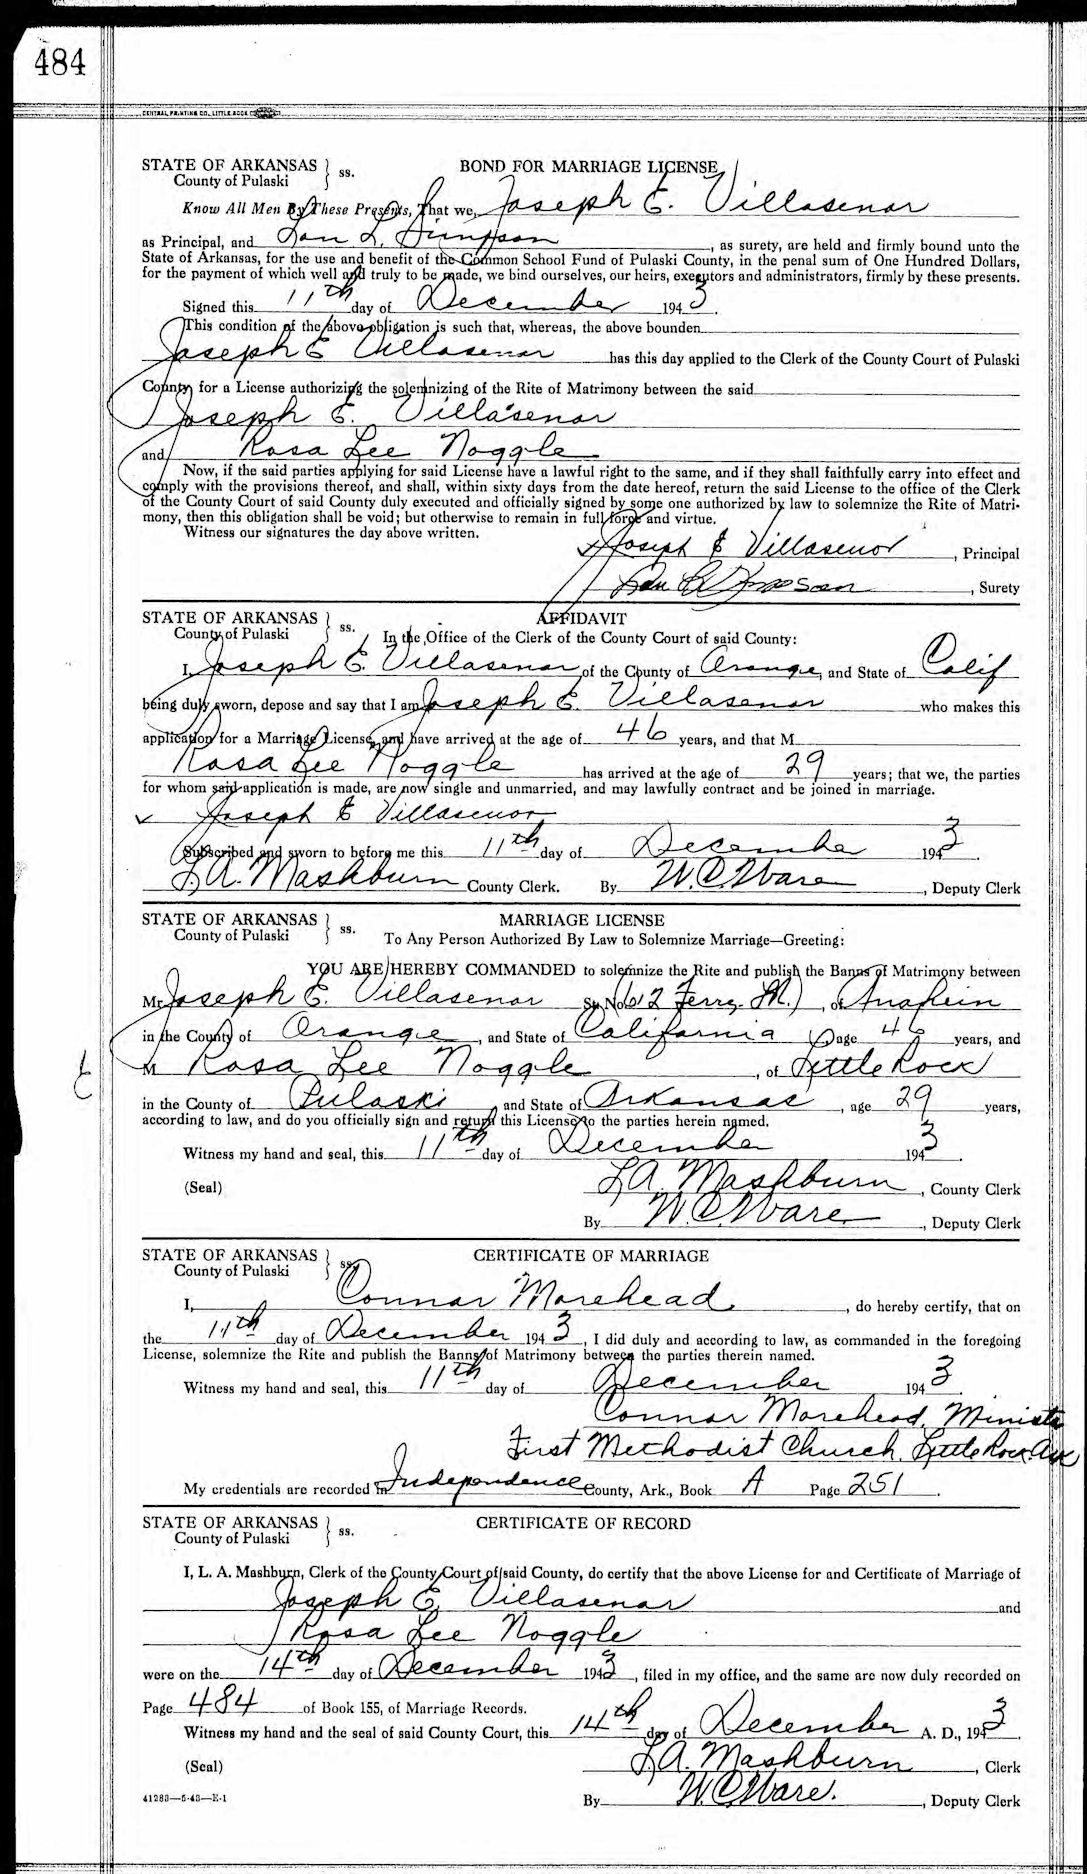 484
CENTRAL PRINTING CO., LITTLE ROCK
STATE OF ARKANSAS } ss. BOND FOR MARRIAGE LICENSE
County of Pulaski
Know All Men By These Presents, That we, Joseph E. Villasenor
as Principal, and Lon L. Simpson, as surety, are held and firmly bound unto the
State of Arkansas, for the use and benefit of the Common School Fund of Pulaski County, in the penal sum of One Hundred Dollars,
for the payment of which well and truly to be made, we bind ourselves, our heirs, executors and administrators, firmly by these presents.
Signed this 11th day of December 1943.
This condition of the above obligation is such that, whereas, the above bounden
Joseph E Villasenor has this day applied to the Clerk of the County Court of Pulaski
County for a License authorizing the solemnizing of the Rite of Matrimony between the said
Joseph E. Villasenor
and Rosa Lee Noggle
Now, if the said parties applying for said License have a lawful right to the same, and if they shall faithfully carry into effect and
comply with the provisions thereof, and shall, within sixty days from the date hereof, return the said License to the office of the Clerk
of the County Court of said County duly executed and officially signed by some one authorized by law to solemnize the Rite of Matri-
mony, then this obligation shall be void; but otherwise to remain in full force and virtue.
Witness our signatures the day above written.
Joseph E Villasenor, Principal
, Surety
STATE OF ARKANSAS } ss. AFFIDAVIT
County of Pulaski In the Office of the Clerk of the County Court of said County:
I, Joseph E. Villasenor of the County of Orange, and State of Calif
being duly sworn, depose and say that I am Joseph E. Villasenor who makes this
application for a Marriage License, and have arrived at the age of 46 years, and that M
Rosa Lee Noggle has arrived at the age of 29 years; that we, the parties
for whom said application is made, are now single and unmarried, and may lawfully contract and be joined in marriage.
Joseph E Villasenor
Subscribed and sworn to before me this 11th day of December 1943.
L.A. Mashburn County Clerk. By W.C. Ware, Deputy Clerk
STATE OF ARKANSAS } ss. MARRIAGE LICENSE
County of Pulaski To Any Person Authorized By Law to Solemnize Marriage—Greeting:
YOU ARE HEREBY COMMANDED to solemnize the Rite and publish the Banns of Matrimony between
Mr. Joseph E. Villasenor St. No. of Anaheim
in the County of Orange, and State of California, age 46 years, and
M Rosa Lee Noggle, of Little Rock
in the County of Pulaski and State of Arkansas, age 29 years,
according to law, and do you officially sign and return this License to the parties herein named.
Witness my hand and seal, this 11th day of December 1943.
(Seal) L.A. Mashburn, County Clerk
By W.C. Ware, Deputy Clerk
STATE OF ARKANSAS } ss. CERTIFICATE OF MARRIAGE
County of Pulaski
I, Connor Morehead, do hereby certify, that on
the 11th day of December 1943, I did duly and according to law, as commanded in the foregoing
License, solemnize the Rite and publish the Banns of Matrimony between the parties therein named.
Witness my hand and seal, this 11th day of December 1943.
Connor Morehead, Ministe
First Methodist Church, Little Rock Ark
My credentials are recorded in Independence County, Ark., Book A Page 251.
STATE OF ARKANSAS } ss. CERTIFICATE OF RECORD
County of Pulaski
I, L. A. Mashburn, Clerk of the County Court of said County, do certify that the above License for and Certificate of Marriage of
Joseph E. Villasenor and
Rosa Lee Noggle
were on the 14th day of December 1943, filed in my office, and the same are now duly recorded on
Page 484 of Book 155, of Marriage Records.
Witness my hand and the seal of said County Court, this 14th day of December A. D., 1943.
(Seal) L.A. Mashburn, Clerk
41283—5-43—E-1 By W.C. Ware., Deputy Clerk